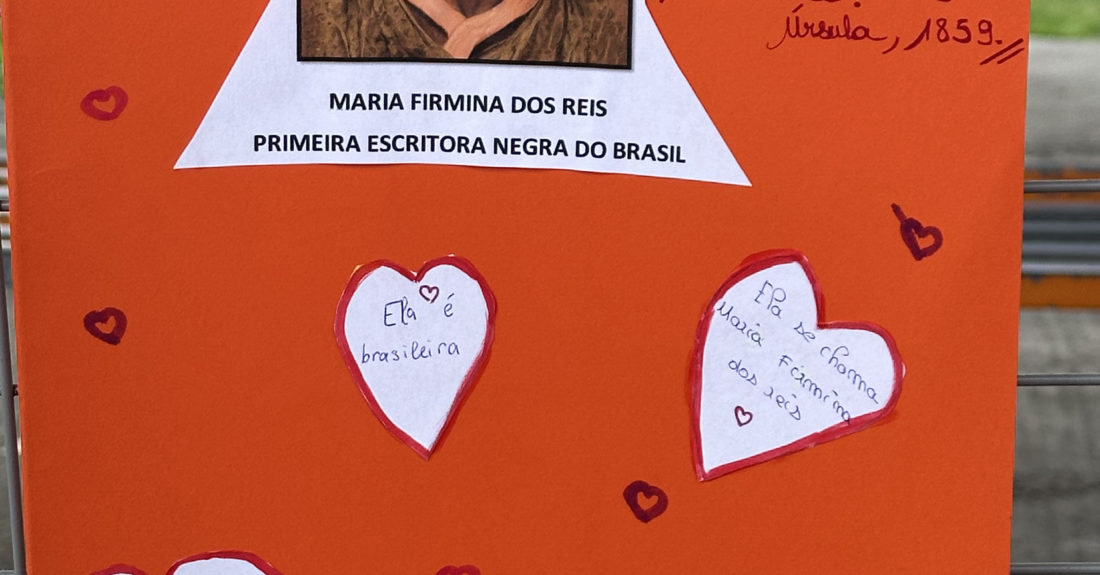 Úrsula, 1859.
MARIA FIRMINA DOS REIS
PRIMEIRA ESCRITORA NEGRA DO BRASIL
Ela é
brasileira
Ela se chama
Maria Firmina
dos reis